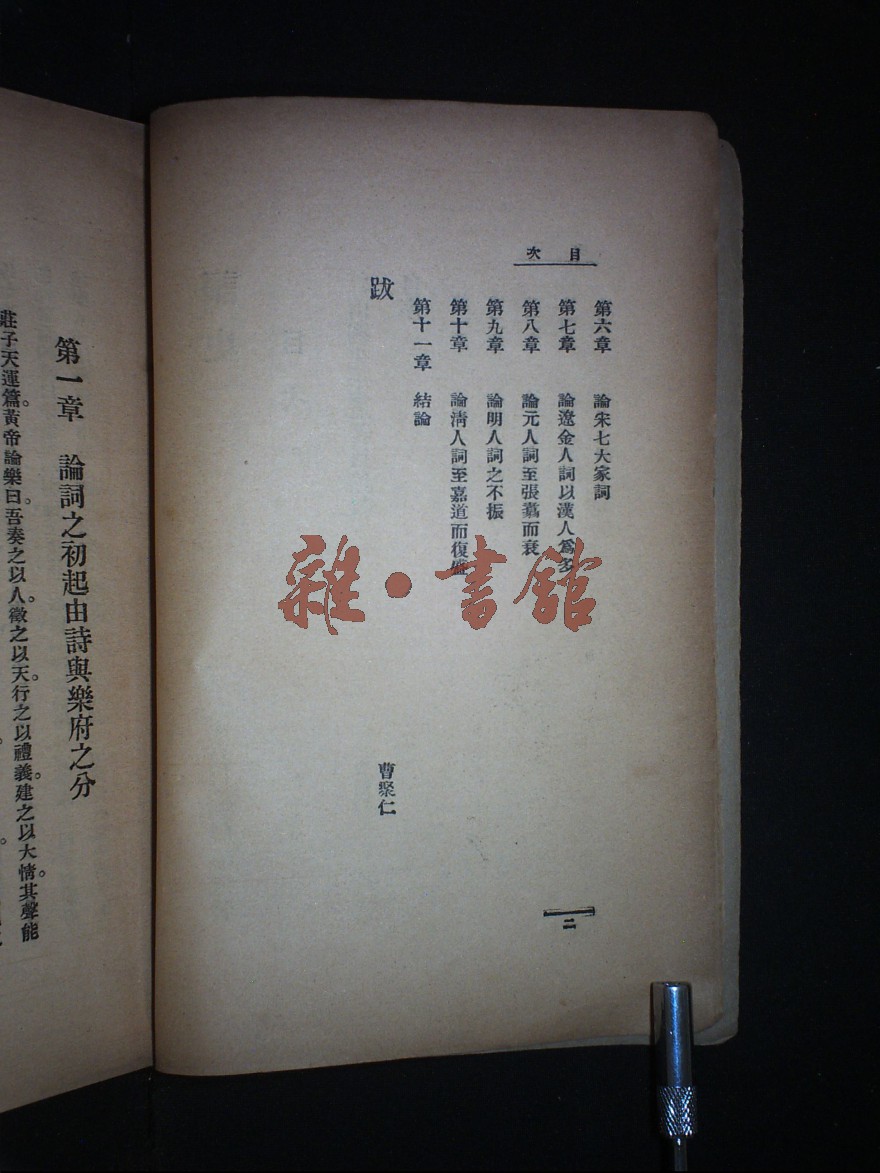 目次
第六章 論宋七大家詞
第七章 論遼金人詞以漢人爲多
第八章 論元人詞至張翥而衰
第九章 論明人詞之不振
第十章 論淸人詞至嘉道而復盛
第十一章 結論
跋 曹聚仁
二
第一章 論詞之初起由詩與樂府之分
莊子天運篇。黃帝論樂曰。吾奏之以人。徵之以天。行之以禮義。建之以大情。其聲能
雜·書館